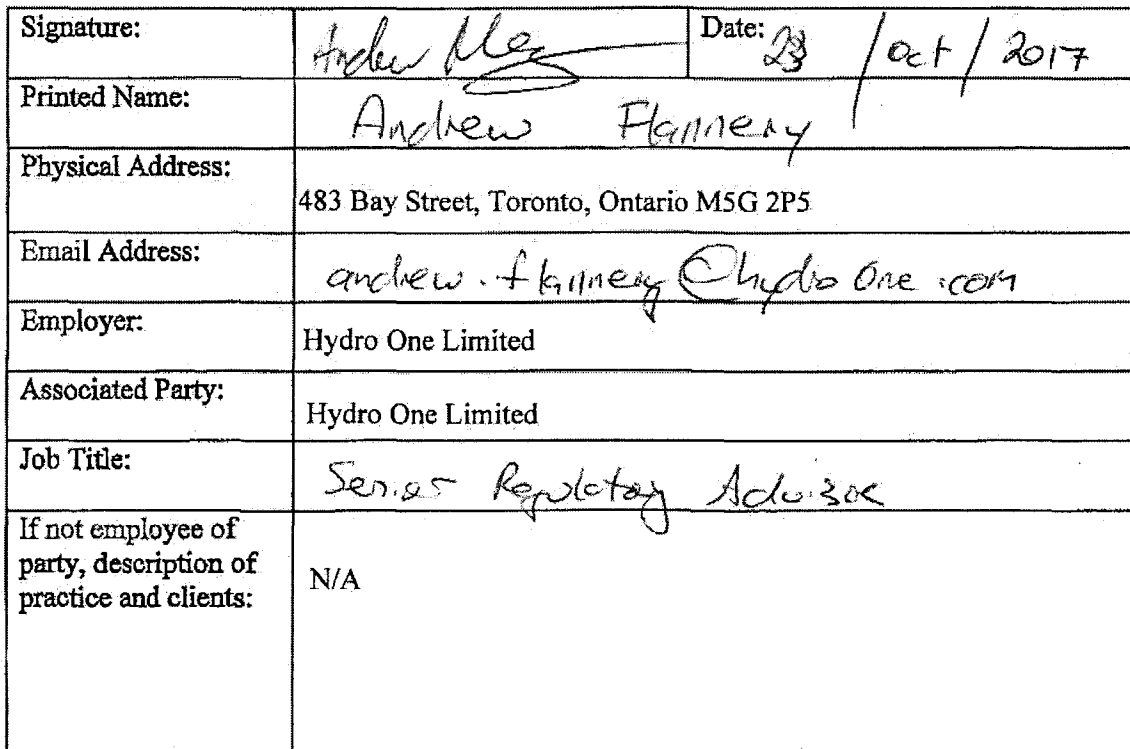 Signature: Andrew Date: 23 / Oct / 2017
Printed Name: Andrew Flannery
Physical Address: 483 Bay Street, Toronto, Ontario M5G 2P5
Email Address: andrew.flannery@hydroOne.com
Employer: Hydro One Limited
Associated Party: Hydro One Limited
Job Title: Senior Regulatory Advisor
If not employee of
party, description of N/A
practice and clients: